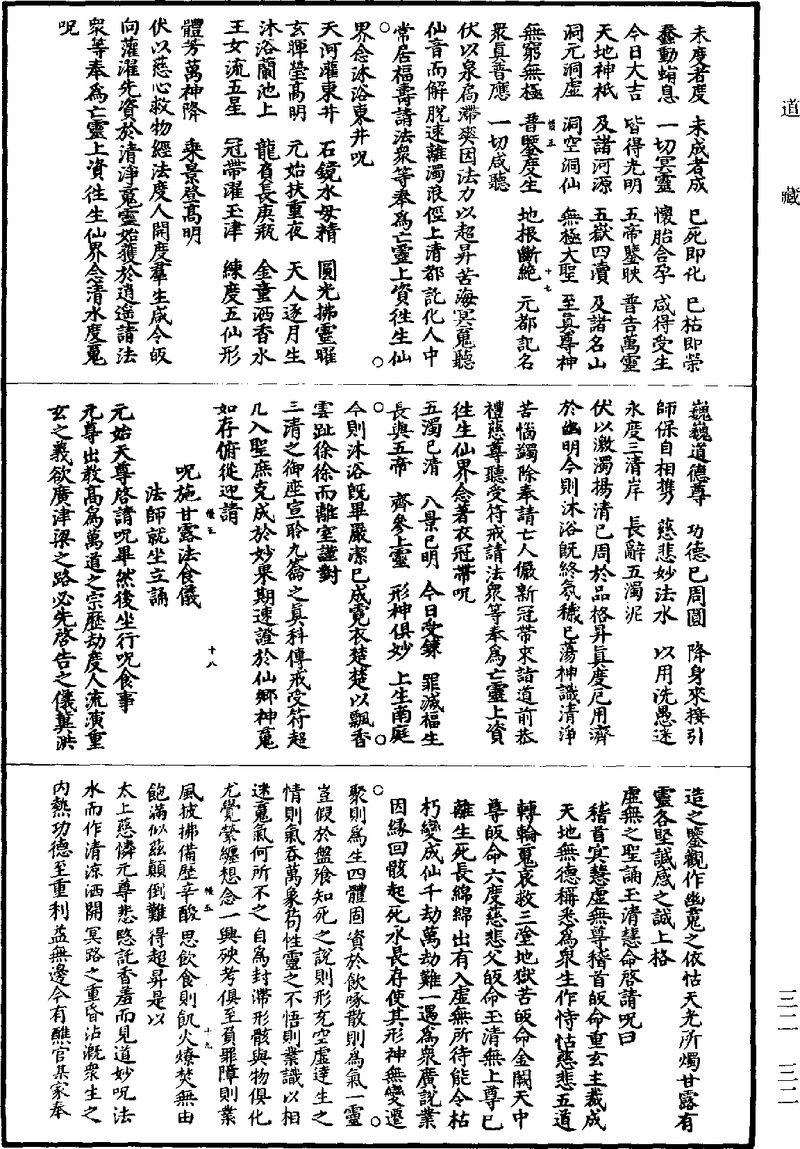 道藏
未度者度　未成者成　已死即化　已枯即榮
蠢動蜎息　一切冥靈　懷胎含孕　咸得受生
今日大吉　皆得光明　五帝鑒映　普告萬靈
天地神祇　及諸河源　五嶽四瀆　及諸名山
洞元洞虛　洞空洞仙　無極大聖　至真尊神
無窮無極　普鑒度生　地根斷絕　元都記名
衆真普應　一切咸聽
伏以泉扃滯爽因法力以超昇苦海冥䰟聽
仙音而解脫速離濁浪徑上清都託化人中
常居福壽請法衆等奉爲亡靈上資徃生仙
界念沐浴東井呪
天河灌東井　石鏡水母精　圓光拂靈曜
玄暉瑩高明　元始扶重夜　天人逐月生
沐浴蘭池上　龍負長庚瓶　金童洒香水
玉女流五星　冠帶濯玉津　練度五仙形
體芳萬神降　乘景登高明
伏以慈心救物經法度人開度羣生咸令皈
向薄濯先資於清淨䰟靈始獲於逍遙請法
衆等奉爲亡靈上資徃生仙界念清水度䰟
呪
巍巍道德尊　功德已周圓　降身來接引
師保自相攜　慈悲妙法水　以用洗愚迷
永度三清岸　長辭五濁泥
伏以激濁揚清已周於品格昇真度厄用濟
於幽明今則沐浴旣終氛穢已蕩神識清淨
苦惱蠲除奉請亡人儼新冠帶來詣道前恭
禮慈尊聽受符戒請法衆等奉爲亡靈上資
徃生仙界念著衣冠帶呪
五濁已清　八景已明　今日受鍊　罪滅福生
長與五帝　齊參上靈　形神俱妙　上生南庭
今則沐浴旣畢嚴潔已成霓衣楚楚以飄香
雲趾徐徐而離室謹對
三清之御座宣聆九籥之真科傳戒受符超
凡入聖庶克成於妙果期速證於仙鄉神䰟
如存俯從迎請
呪施甘露法食儀
法師就坐立誦
元始天尊啓請呪畢然後坐行呪食事
元尊出教高爲萬道之宗歷劫度人流演重
玄之義欲廣津梁之路必先啓告之儀冀洪
造之鑒觀作幽䰟之依怙天光所燭甘露有
靈各堅誠感之誠上格
虛無之聖誦玉清慧命啓請呪曰
稽首冥慧虛無尊稽首皈命重玄主裁成
天地無德稱悉爲衆生作恃怙慈悲五道
轉輪䰟哀救三塗地獄苦皈命金闕天中
尊皈命六度慈悲父皈命玉清無上尊已
離生死長綿綿出有入虛無所待能令枯
朽變成仙千劫萬劫難一遇爲衆廣說業
因緣回骸起死水長存使其形神無變遷
聚則爲生四體固資於飲啄散則爲氣一靈
豈假於盤飱知死之說則形充空虛達生之
情則氣吞萬象苟性靈之不悟則業識以相
迷䰟氣何所不之自爲封滯形骸與物俱化
尤覺縈纏想念一興殃考俱至負罪障則業
風披拂備歷辛酸思飲食則飢火燎焚無由
飽滿似茲顛倒難得超昇是以
太上慈憐元尊悲愍託香羞而見道妙呪法
水而作清涼洒開冥路之重昏沾漑衆生之
内熱功德至重利益無邊今有醮官某家奉
三二　三二